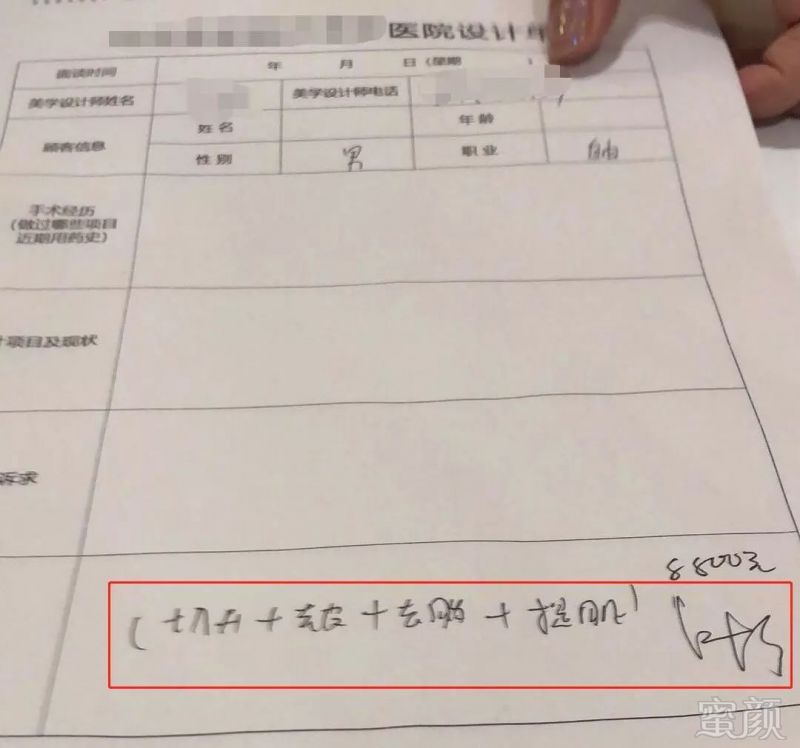 医院设计单
面谈时间 年 月 日(星期 )
美学设计师姓名 美学设计师电话
顾客信息 姓名 年龄
性别 男 职业 自由
手术经历
(做过哪些项目
近期用药史)
计项目及现状
诉求
8800元
(切开+去皮+去脂+提肌)
蜜颜